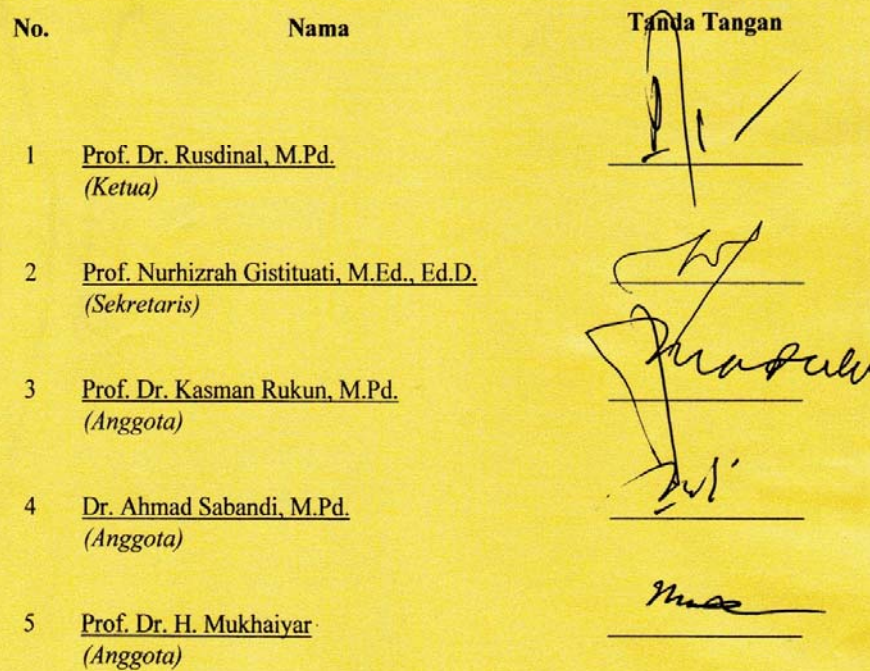 No. Nama Tanda Tangan
1 Prof. Dr. Rusdinal, M.Pd.
(Ketua)
2 Prof. Nurhizrah Gistituati, M.Ed., Ed.D.
(Sekretaris)
3 Prof. Dr. Kasman Rukun, M.Pd.
(Anggota)
4 Dr. Ahmad Sabandi, M.Pd.
(Anggota)
5 Prof. Dr. H. Mukhaiyar
(Anggota)